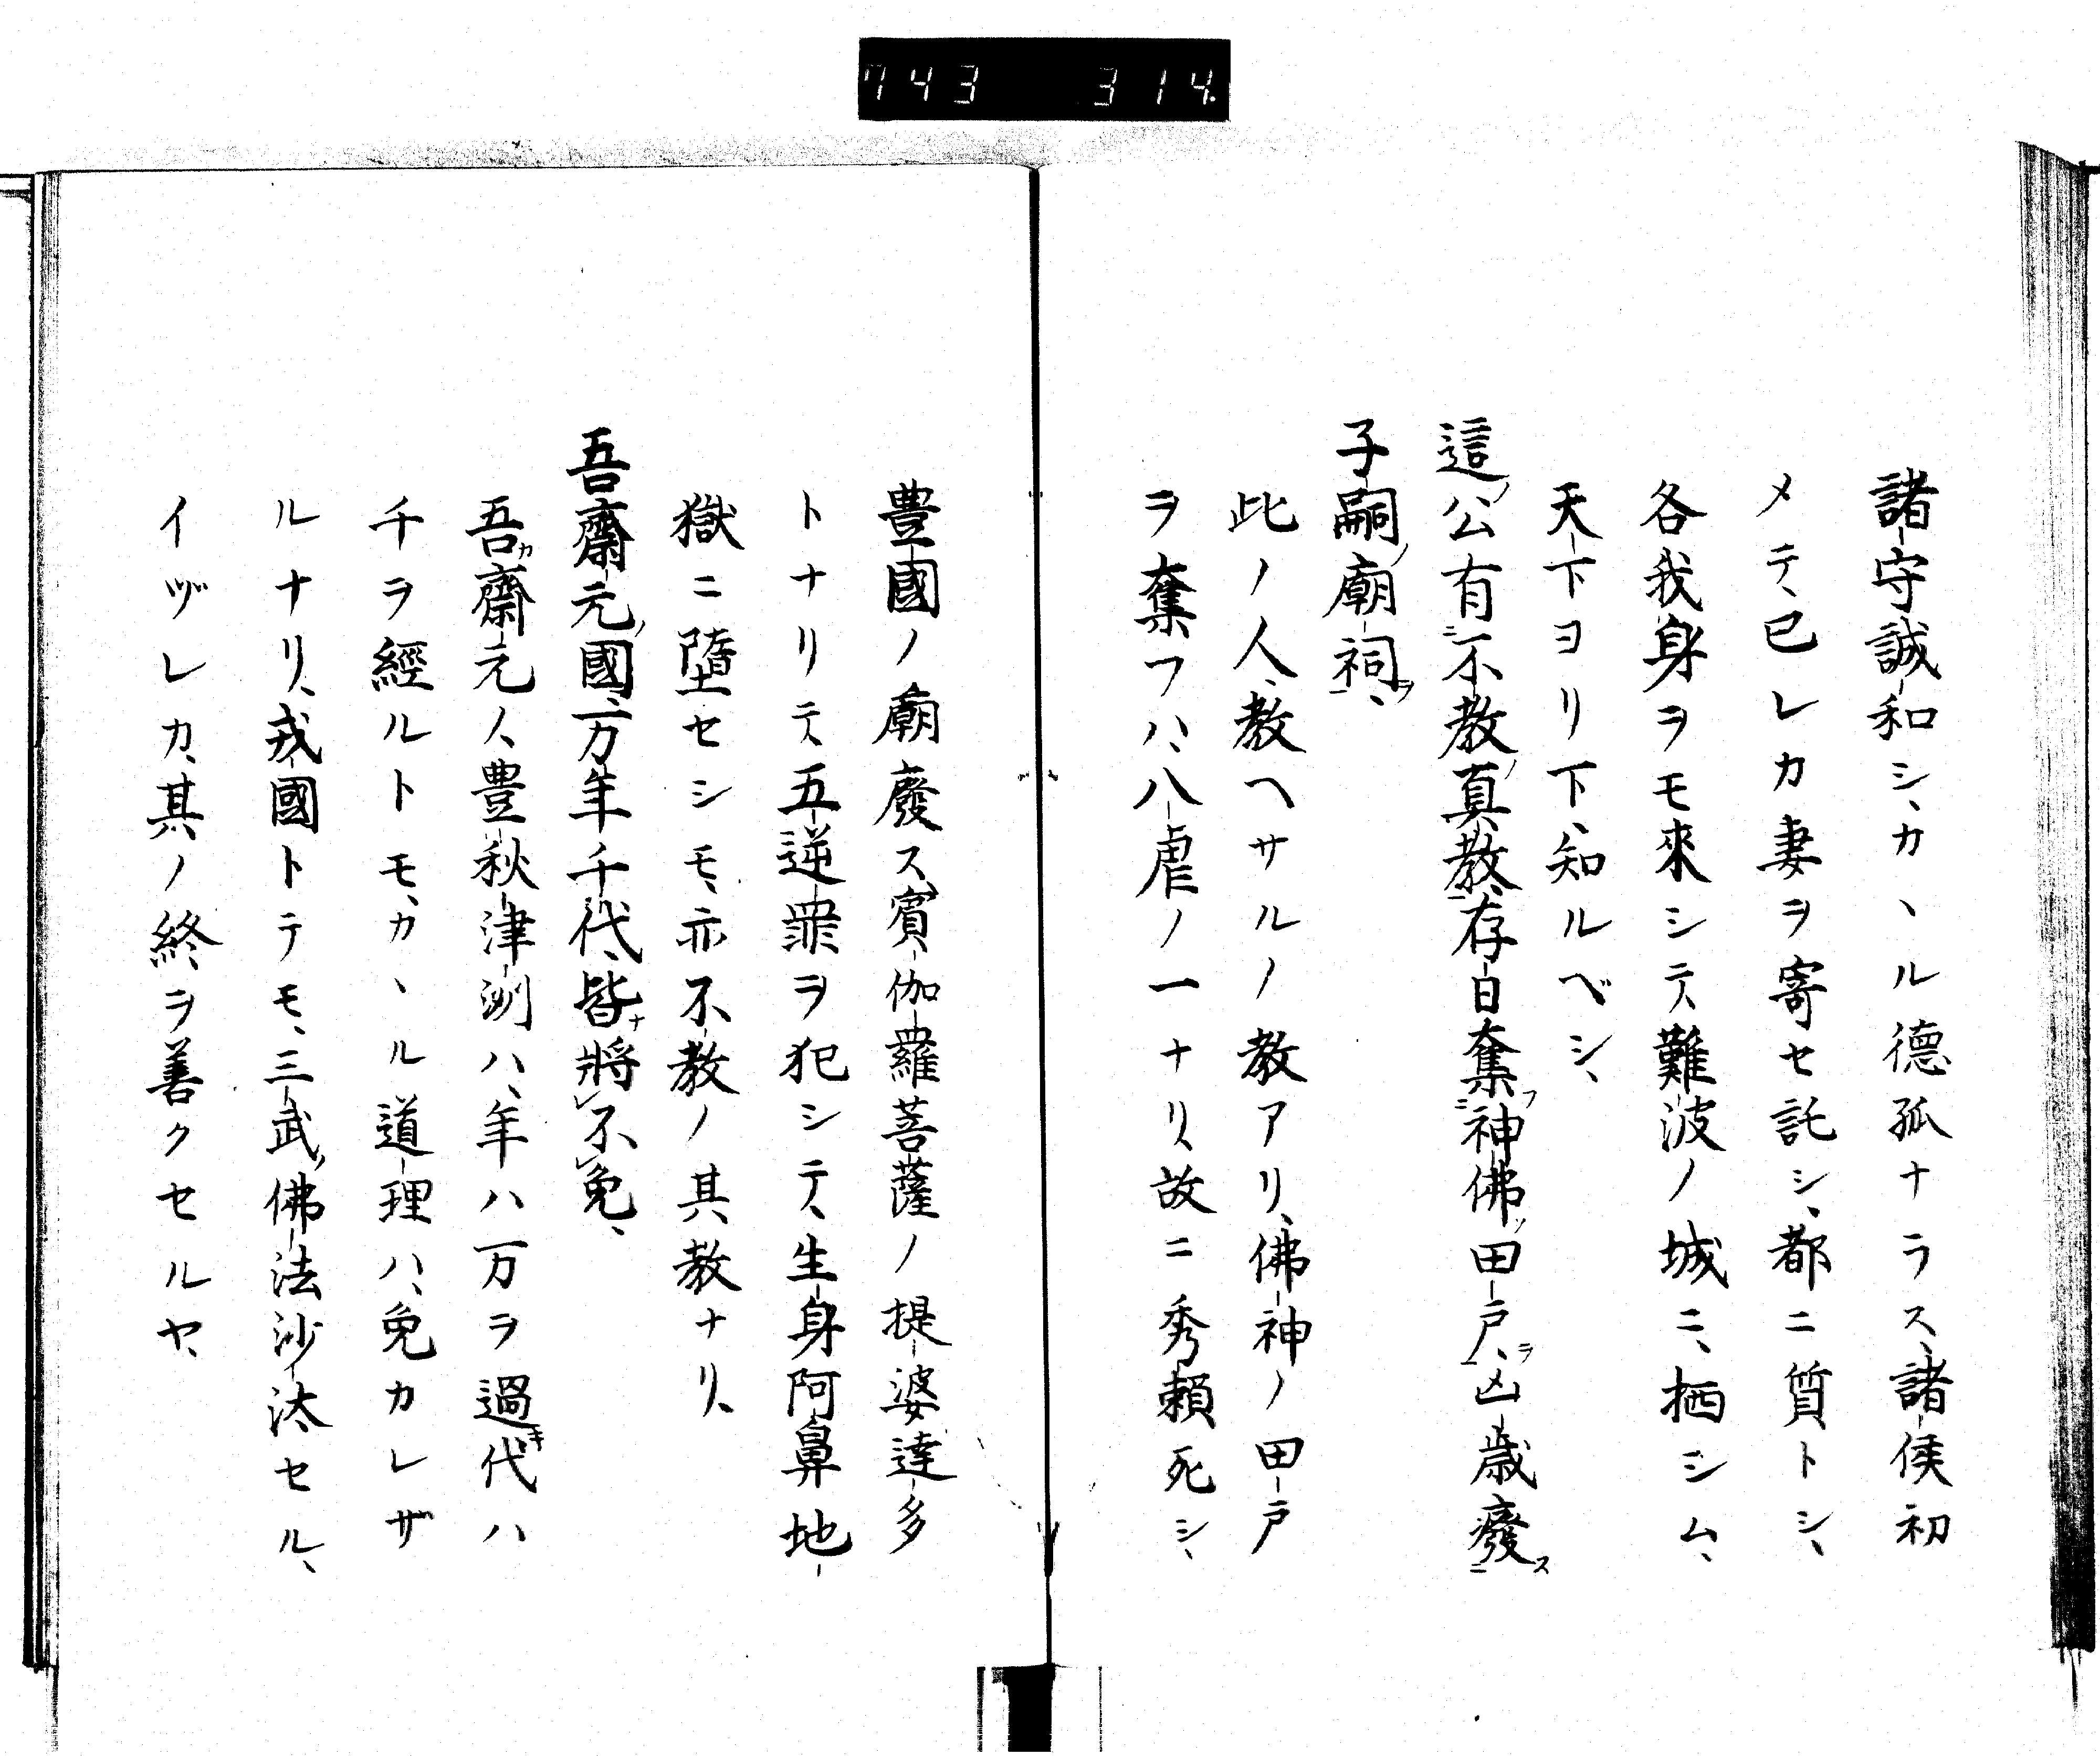 743 314.
諸守誠和シ、カヽル德孤ナラス、諸侯初
メテ、已レカ妻ヲ寄セ託シ、都ニ質トシ、
各我身ヲモ來シテ、難波ノ城ニ、栖シム、
天下ヨリ下、知ルベシ、
這ノ公有不教真教、存日奪神佛田戸、凶歳癈
子嗣廟祠、
此ノ人、教ヘサルノ教アリ、佛神ノ田戸
ヲ奪フハ、八虐ノ一ナリ、故ニ秀賴死シ、
豊國ノ廟廢ス、賓伽羅菩薩ノ提婆達多
トナリテ、五逆罪ヲ犯シテ、生身阿鼻地
獄ニ墮セシモ、亦不教ノ其教ナリ、
吾齋元ノ國、万年千代、皆將不免、
吾カ齋元ノ、豊秋津洲ハ、年ハ万ヲ過キ代ハ
千ヲ經ルトモ、カヽル道理ハ、免カレザ
ルナリ、戎國トテモ、三武ノ佛法沙汰セル、
イヅレカ、其ノ終ヲ善クセルヤ、